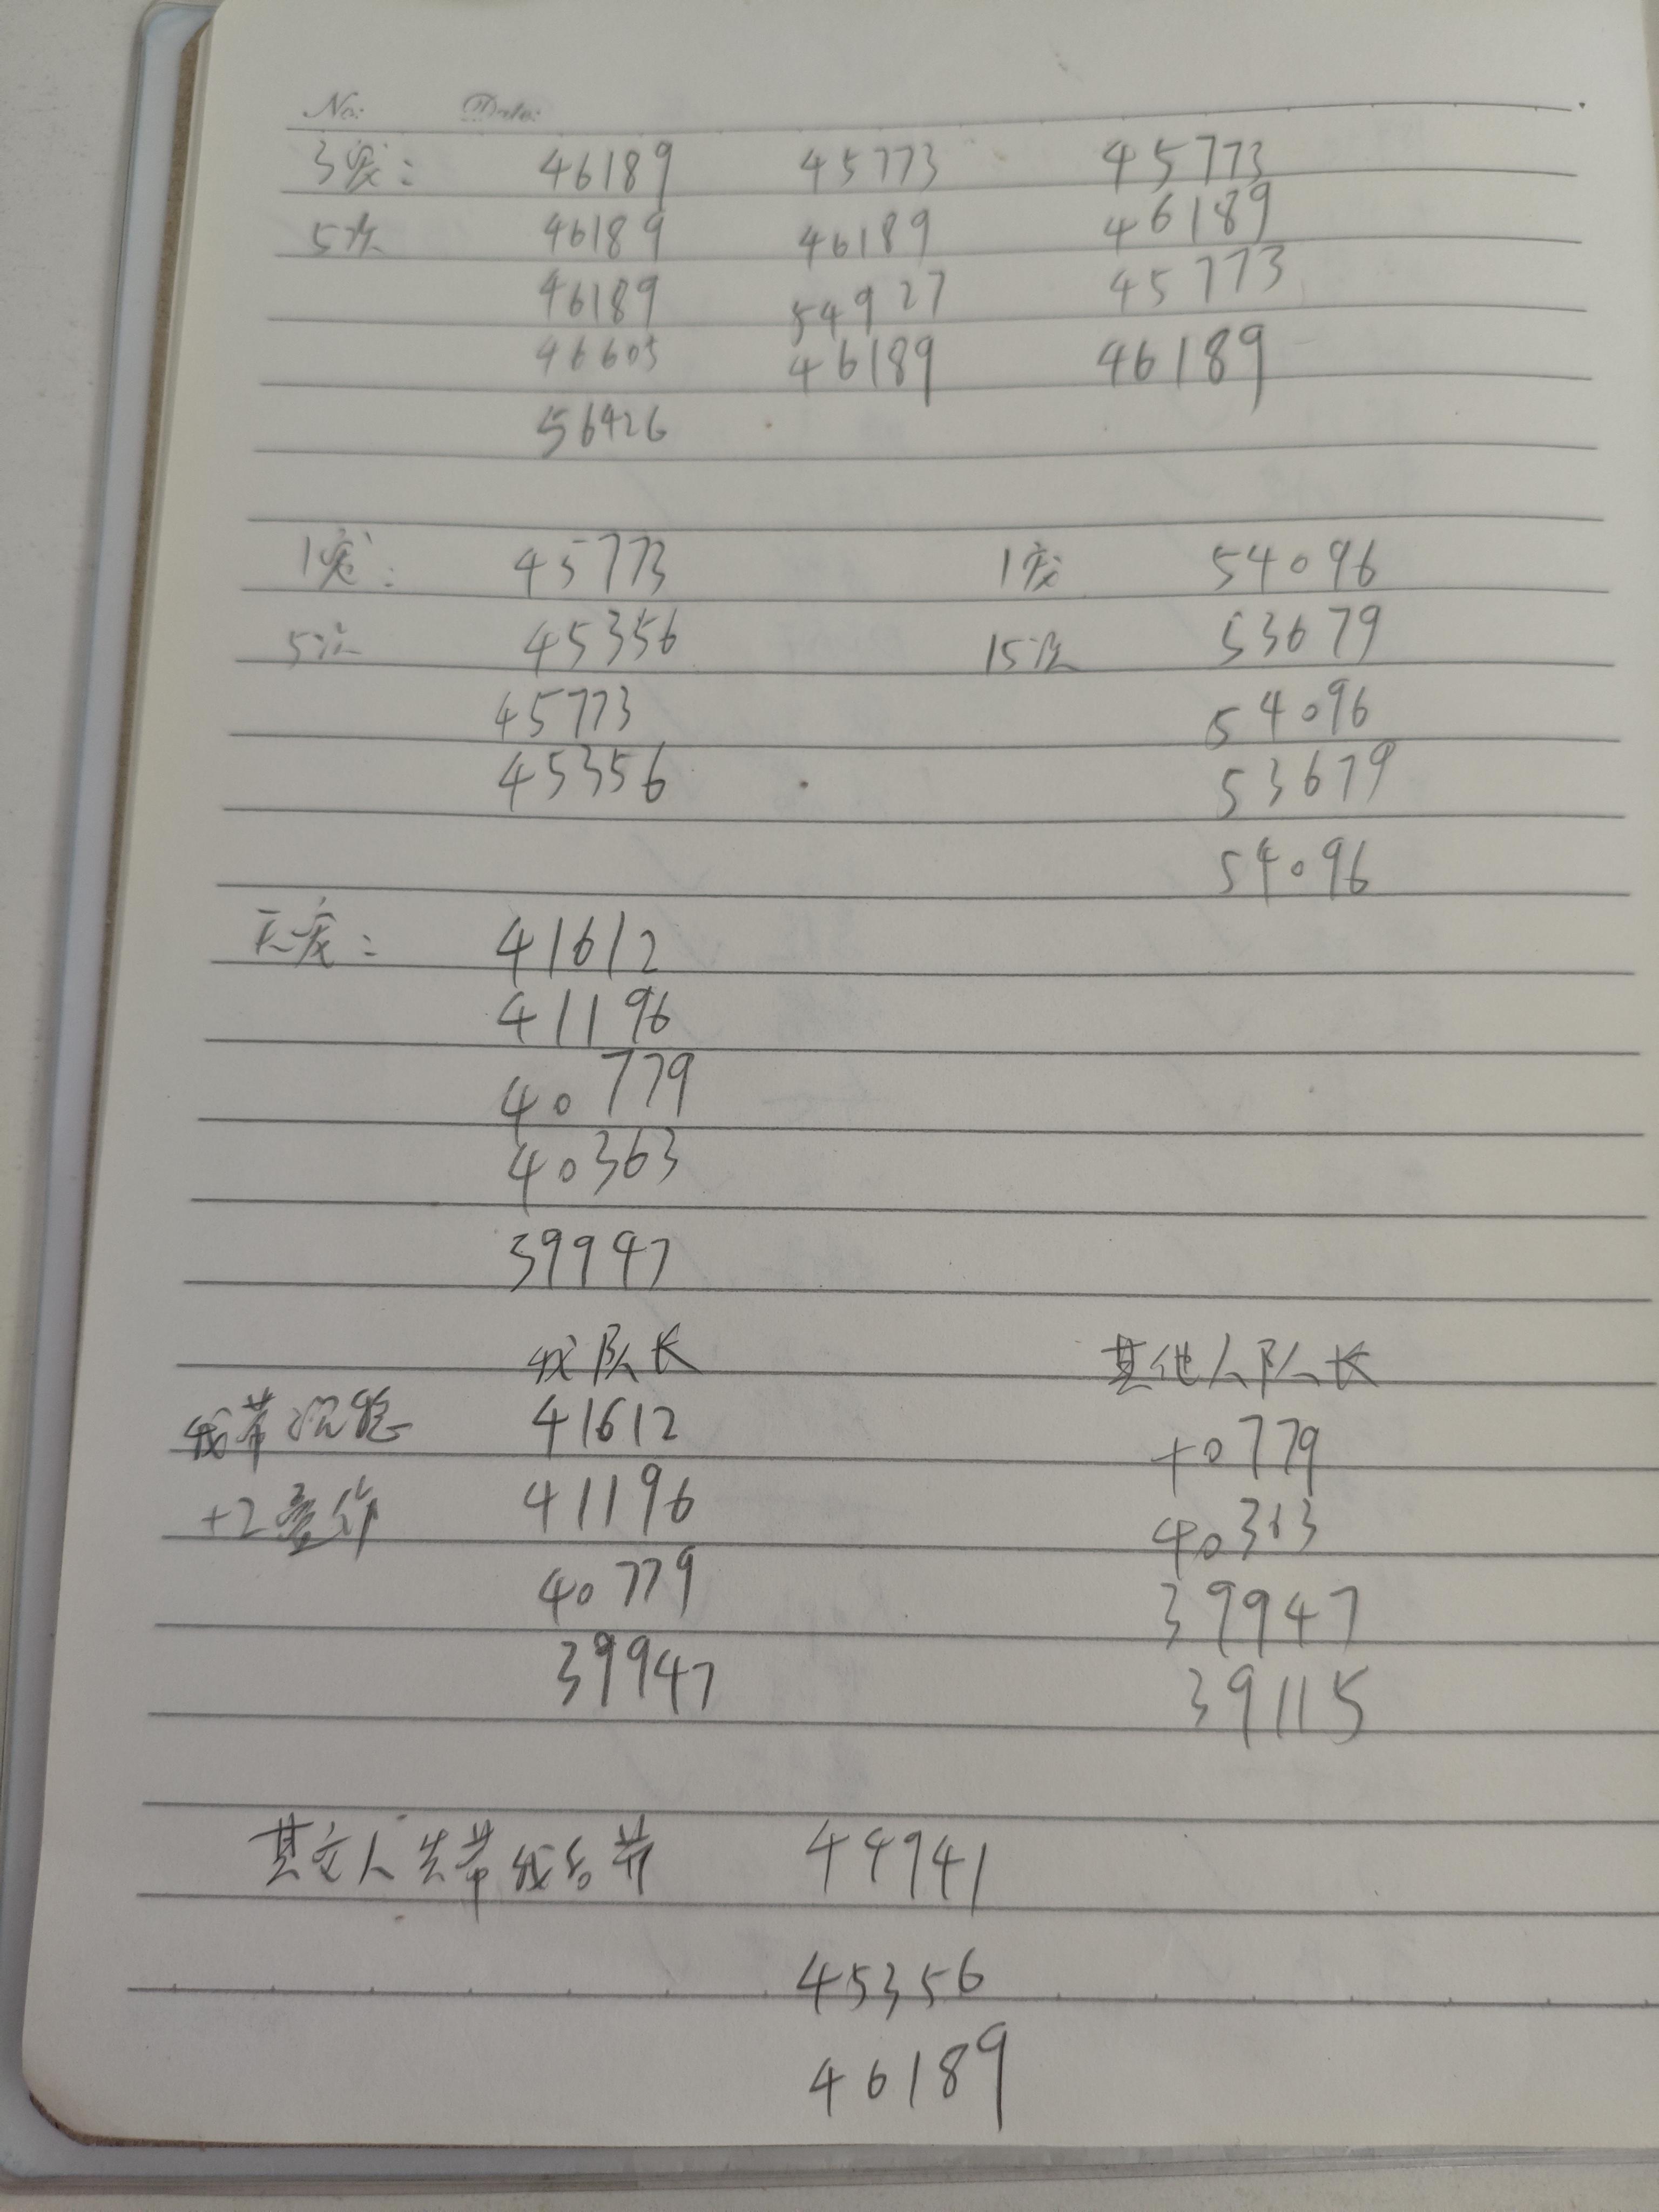 No: Date:
3宠: 46189 45773 45773
5次 46189 46189 46189
46189 54927 45773
46605 46189 46189
56426
1宠: 45773 1宠 54096
5次 45356 15队 53679
45773 54096
45356 53679
54096
无宠: 41612
41196
40779
40363
39947
我队长 其他人队长
我带 41612 40779
+2 41196 40363
40779 39947
39947 39115
其它人先带我后带 44941
45356
46189